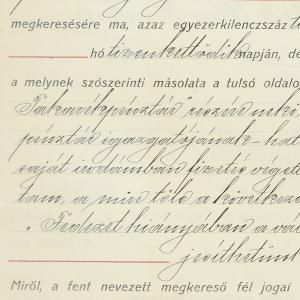 megkeresésére ma, azaz egyezerkilenczszáz
hó tizenkettődik napján, de
a melynek szószerinti másolata a tulsó oldalo
Takarékpénztár" részére neki,
pénztár igazgatójának - hat
saját irodámban fizetés végett
tam, a mire tőle a következő
"Fedezet hiányában a vál
jesíthetünk
Miről, a fent nevezett megkereső fél jogai